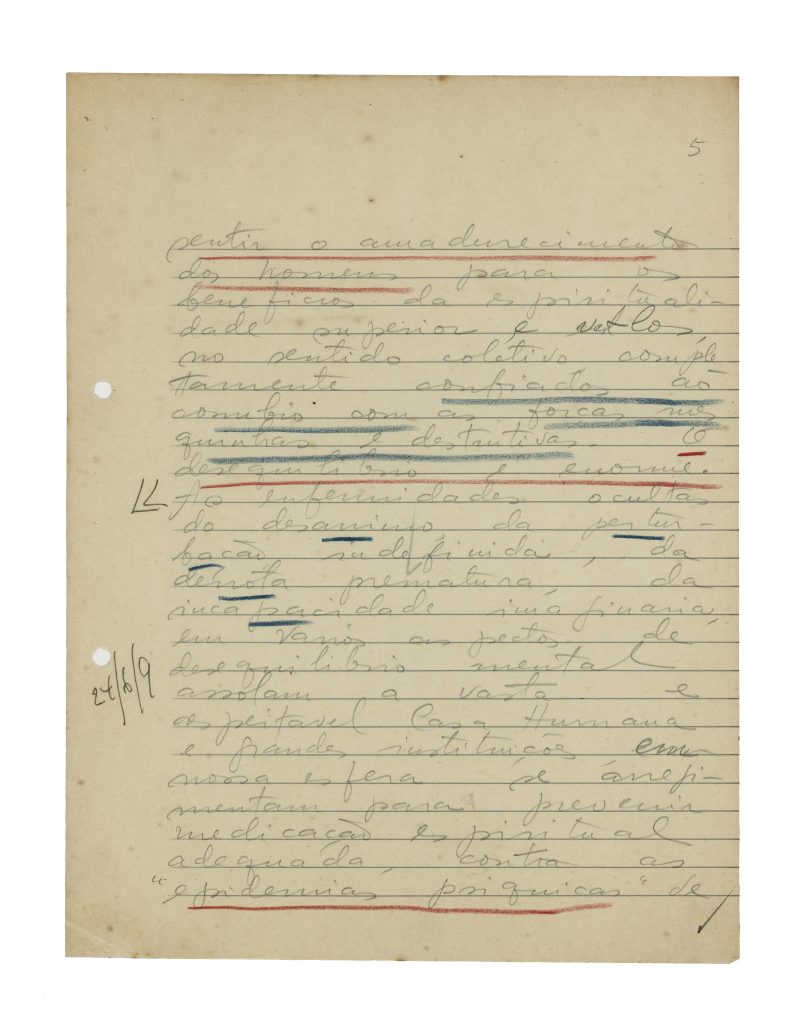 5
sentir o amadurecimento
dos homens para os
beneficios da espirituali-
dade superior e vel-os,
no sentido coletivo, comple
tamente confiados ao
comubio com as forças mes
quinhas e destrutivas. O
desequilibrio é enorme.
As enfermidades ocultas
do desanimo, da pertur-
bação indefinida, da
derrota prematura, da
incapacidade imaginaria,
em varios aspectos de
desequilibrio mental
assolam a vasta e
respeitavel Casa Humana
e grandes instituições em
nossa esfera se arregi-
mentam para prevenir
medicação espiritual
adequada, contra as
"epidemias psiquicas" de
24/6/9